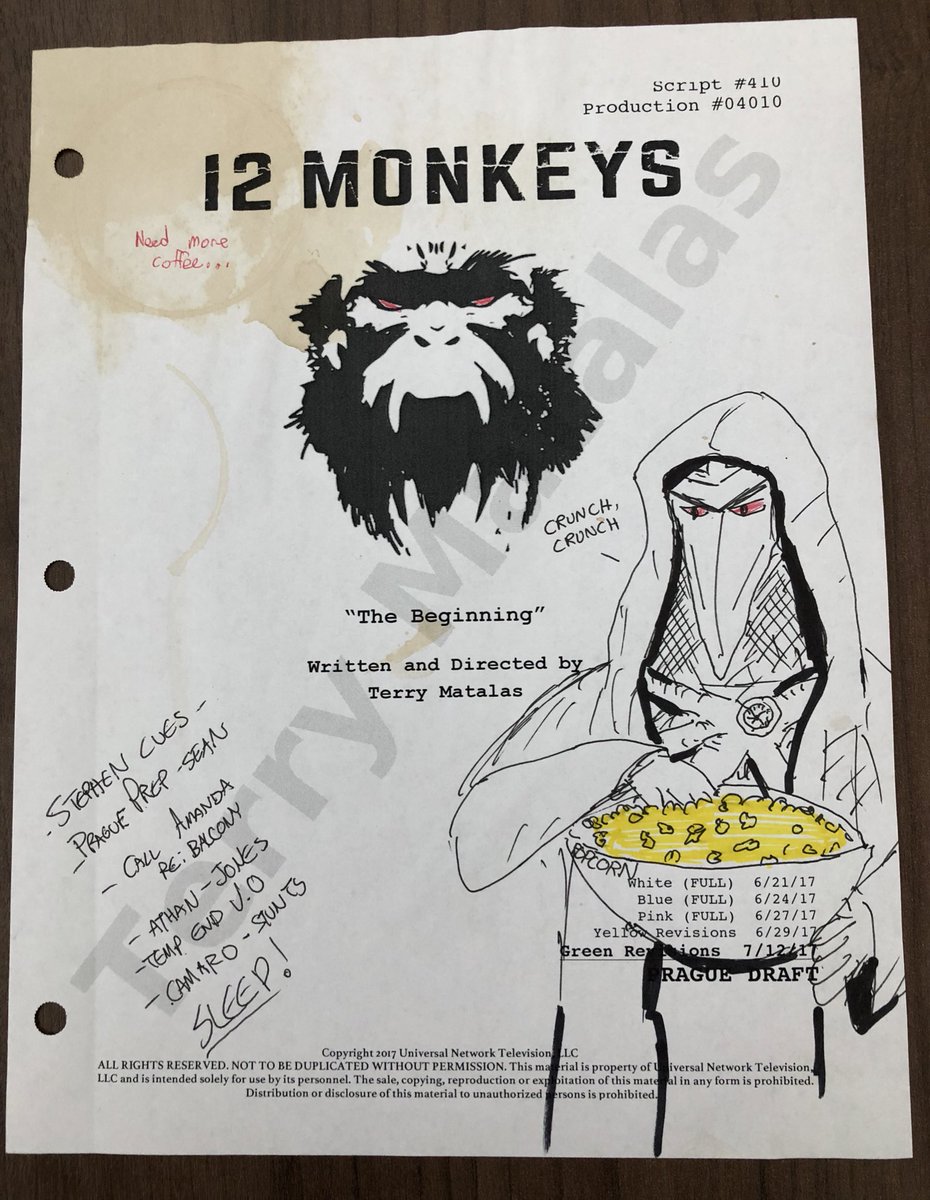 Script #410
Production #04010
12 MONKEYS
Need more
coffee...
CRUNCH,
CRUNCH
"The Beginning"
Written and Directed by
Terry Matalas
Terry Matalas
- STEPHEN CUES -
- PRAGUE PREP - SEAN
- CALL AMANDA
RE: BALCONY
- ATHAN - JONES
- TEMP END V.O
- CAMARO - STUNTS
SLEEP!
POPCORN
White (FULL) 6/21/17
Blue (FULL) 6/24/17
Pink (FULL) 6/27/17
Yellow Revisions 6/29/17
Green Revisions 7/12/17
PRAGUE DRAFT
Copyright 2017 Universal Network Television, LLC
ALL RIGHTS RESERVED. NOT TO BE DUPLICATED WITHOUT PERMISSION. This material is property of Universal Network Television,
LLC and is intended solely for use by its personnel. The sale, copying, reproduction or exploitation of this material in any form is prohibited.
Distribution or disclosure of this material to unauthorized persons is prohibited.